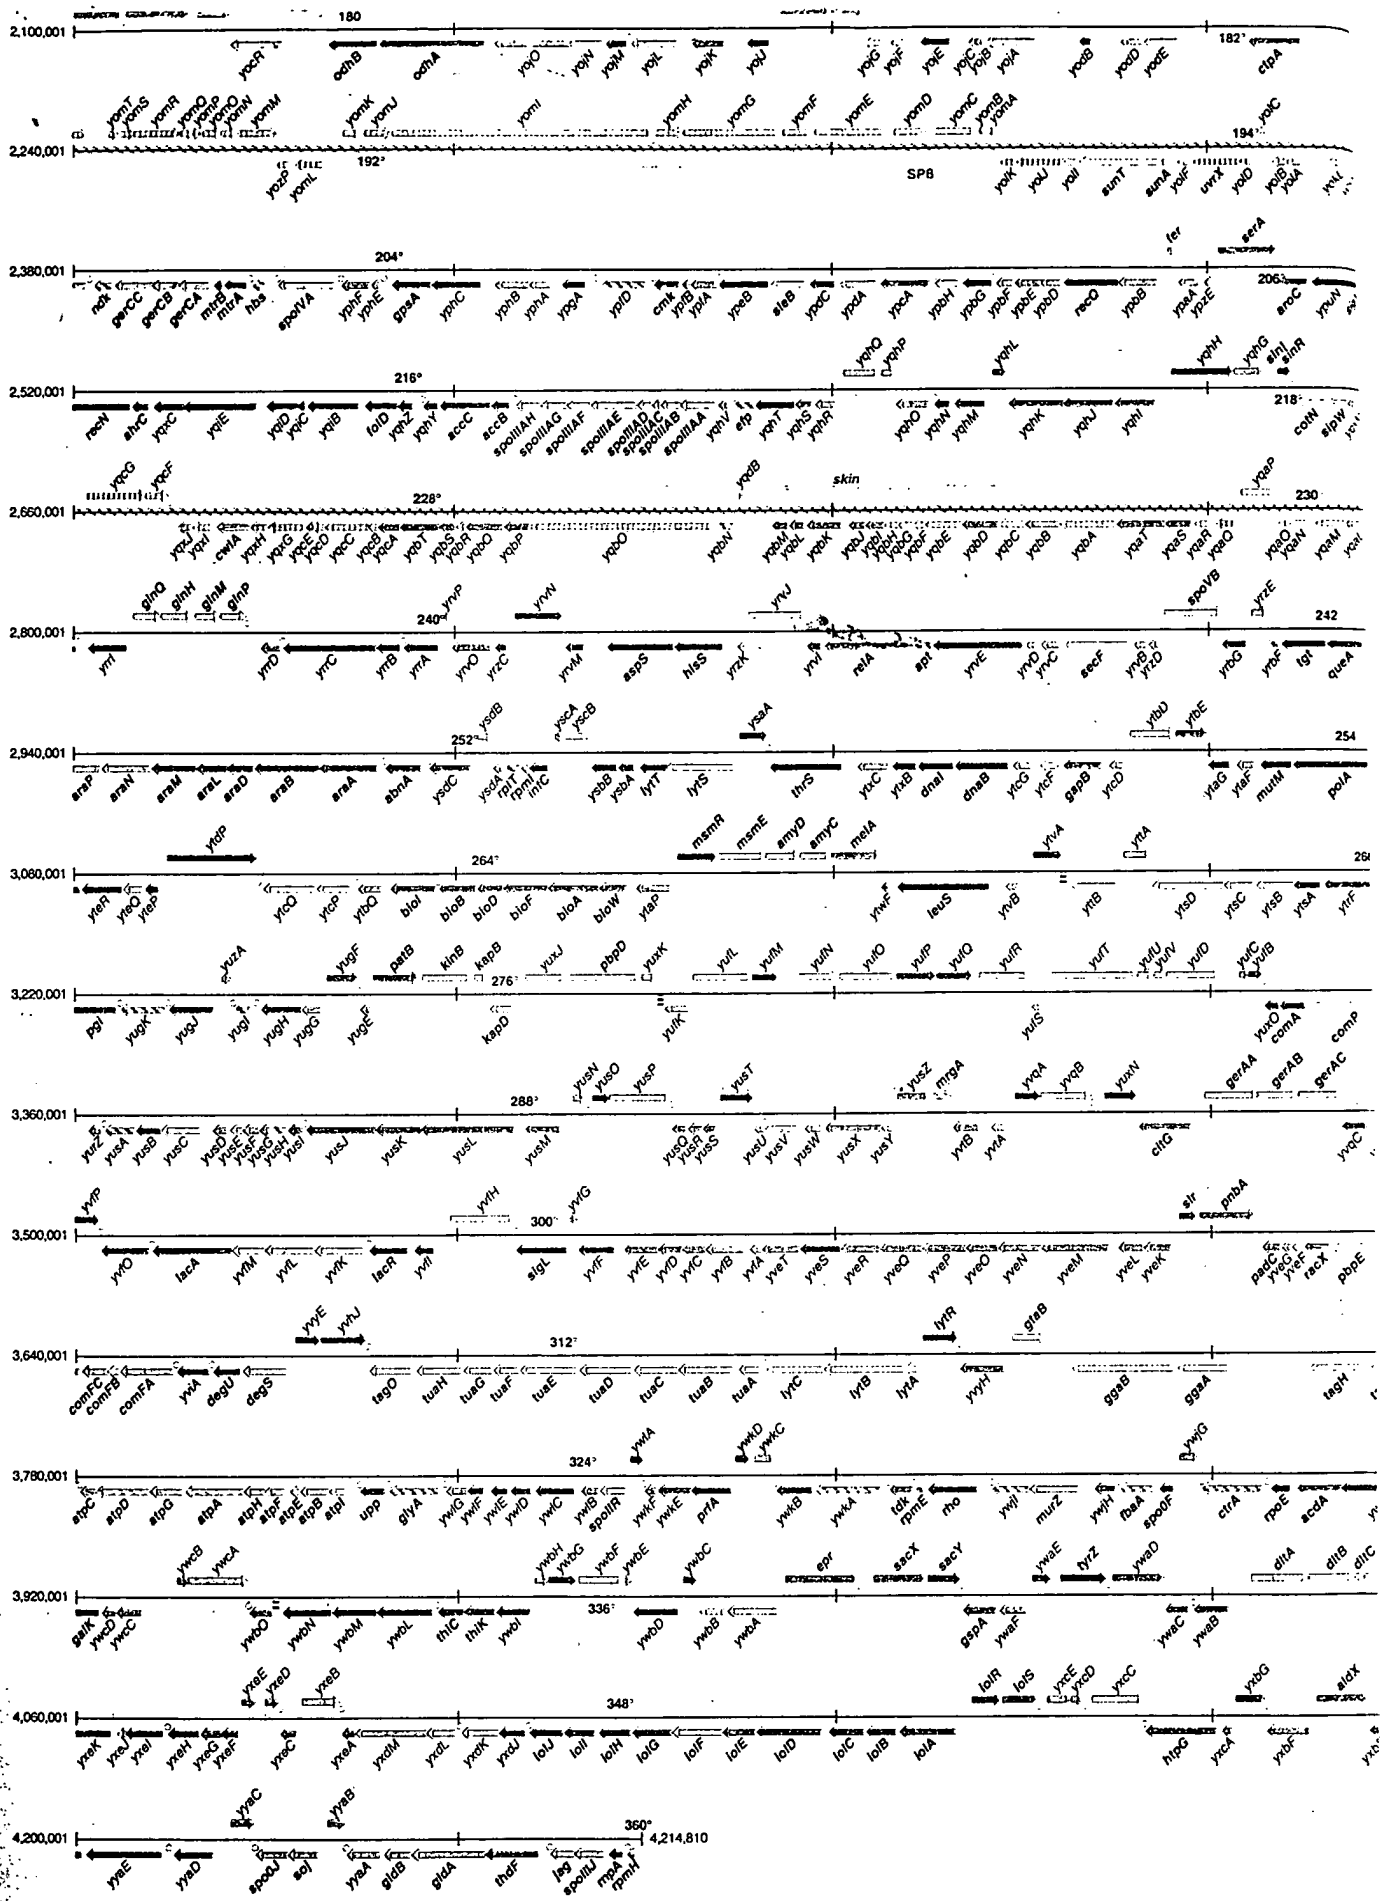 180
2,100,001
yocR odhB odhA yojO yojN yojM yojL yojK yojJ yojG yojF yojE yojC yojB yojA yodB yodD yodE 182° ctpA
yomT yomS yomR yomQ yomP yomO yomN yomM yomK yomJ yomI yomH yomG yomF yomE yomD yomC yomB yomA yolC
2,240,001
yozP yomL 192° SPß yolK yolJ yolI sunT sunA yolF uvrX yolD 194° yolB yolA
fer serA
2,380,001 204° 206°
ndk gerCC gerCB gerCA mtrB mtrA hbs spoIVA yphF yphE gpsA yphC yphB yphA ypgA ypiD cmk ypfB ypfA ypeB sleB ypdC ypdA ypcA ypbH ypbG ypbF ypbE ypbD recQ ypbB ypaA ypzE aroC ypuN
yqhQ yqhP yqhL yqhH yqhG sinI sinR
2,520,001 216° 218°
recN ahrC yqxC yqiE yqiD yqiC yqiB folD yqhZ yqhY accC accB spoIIIAH spoIIIAG spoIIIAF spoIIIAE spoIIIAD spoIIIAC spoIIIAB spoIIIAA yqhV efp yqhT yqhS yqhR yqhO yqhN yqhM yqhK yqhJ yqhI cotN sipW
yqcG yqcF yqdB skin yqaP
2,660,001 228° 230
yqxJ yqxI cwlA yqxH yqxG yqcE yqcD yqcC yqcB yqcA yqbT yqbS yqbR yqbQ yqbP yqbO yqbN yqbM yqbL yqbK yqbJ yqbI yqbH yqbG yqbF yqbE yqbD yqbC yqbB yqbA yqaT yqaS yqaR yqaQ yqaO yqaN yqaM yqaL
glnQ glnH glnM glnP yrvP yrvN yrvJ spoVB yrzE
2,800,001 240° 242
yrrI yrrD yrrC yrrB yrrA yrvO yrzC yrvM aspS hisS yrzK yrvI relA apt yrvE yrvD yrvC secF yrvB yrzD yrbG yrbF tgt queA
ysdB yscA yscB ysaA ytbD ytbE
2,940,001 252° 254
araP araN araM araL araD araB araA abnA ysdC ysdA rplT rpmI infC ysbB ysbA lytT lytS thrS ytxC ytxB dnaI dnaB ytcG ytcF gapB ytcD ytaG ytaF mutM polA
ytdP msmR msmE amyD amyC melA ytvA yttA
3,080,001 264°
yteR yteQ yteP ytcQ ytcP ytbQ bioI bioB bioD bioF bioA bioW ytaP ytwF leuS ytvB yttB ytsD ytsC ytsB ytsA ytrF
yuzA yugF patB kinB kapB yuxJ pbpD yuxK yufL yufM yufN yufO yufP yufQ yufR yufT yufU yufV yufD yufC yufB
3,220,001 276°
pgi yugK yugJ yugI yugH yugG yugE kapD yufK yufS yuxO comA comP
yusN yusO yusP yusT yusZ mrgA yvqA yvqB yuxN gerAA gerAB gerAC
3,360,001 288°
yurZ yusA yusB yusC yusD yusE yusF yusG yusH yusI yusJ yusK yusL yusM yusQ yusR yusS yusU yusV yusW yusX yusY yvtB yvtA citG yvqC
yvfP yvfH yvfG slr pnbA
3,500,001 300°
yvfO lacA yvfM yvfL yvfK lacR yvfI sigL yvfF yvfE yvfD yvfC yvfB yvfA yveT yveS yveR yveQ yveP yveO yveN yveM yveL yveK padC yveG yveF racX pbpE
yvyE yvhJ lytR gtaB
3,640,001 312°
comFC comFB comFA yviA degU degS tagO tuaH tuaG tuaF tuaE tuaD tuaC tuaB tuaA lytC lytB lytA yvyH ggaB ggaA tagH
ywlA ywkD ywkC ywjG
3,780,001 324°
atpC atpD atpG atpA atpH atpF atpE atpB atpI upp glyA ywlG ywlF ywlE ywlD ywlC ywlB spoIIR ywkF ywkE prfA ywkB ywkA tdk rpmE rho ywjI murZ ywjH fbaA spo0F ctrA rpoE acdA
ywcB ywcA ywbH ywbG ywbF ywbE ywbC epr sacX sacY ywaE tyrZ ywaD dltA dltB dltC
3,920,001 336°
galK ywcD ywcC ywbO ywbN ywbM ywbL thiC thiK ywbI ywbD ywbB ywbA gspA ywaF ywaC ywaB
yxeE yxeD yxeB iolR iolS yxcE yxcD yxcC yxbG aldX
4,060,001 348°
yxeK yxeJ yxeI yxeH yxeG yxeF yxeC yxeA yxdM yxdL yxdK yxdJ iolJ iolI iolH iolG iolF iolE iolD iolC iolB iolA htpG yxcA yxbF
yyaC yyaB
4,200,001 360° 4,214,810
yyaE yyaD spo0J soj yyaA gidB gidA thdF jag spoIIIJ rnpA rpmH